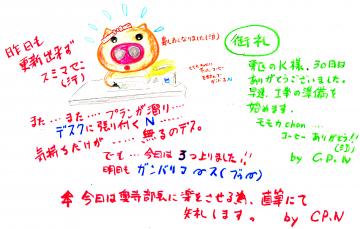 昨日も
更新出来ず
スミマセン
(汗)
また…また…プランが溜り…
デスクに張り付くN……
気持ちだけが……焦るのデス。
でも…今日は3つ上りました!!
明日もガンバリマース(ブゥ)
今日は奥寺部長に楽をさせる為、直筆にて
失礼します。 by CP.N
御礼
K様、30日は
ありがとうございました。
早速、工事の準備を
始めます。
モモカchon…
コーヒーありがとう!!
by C.P.N